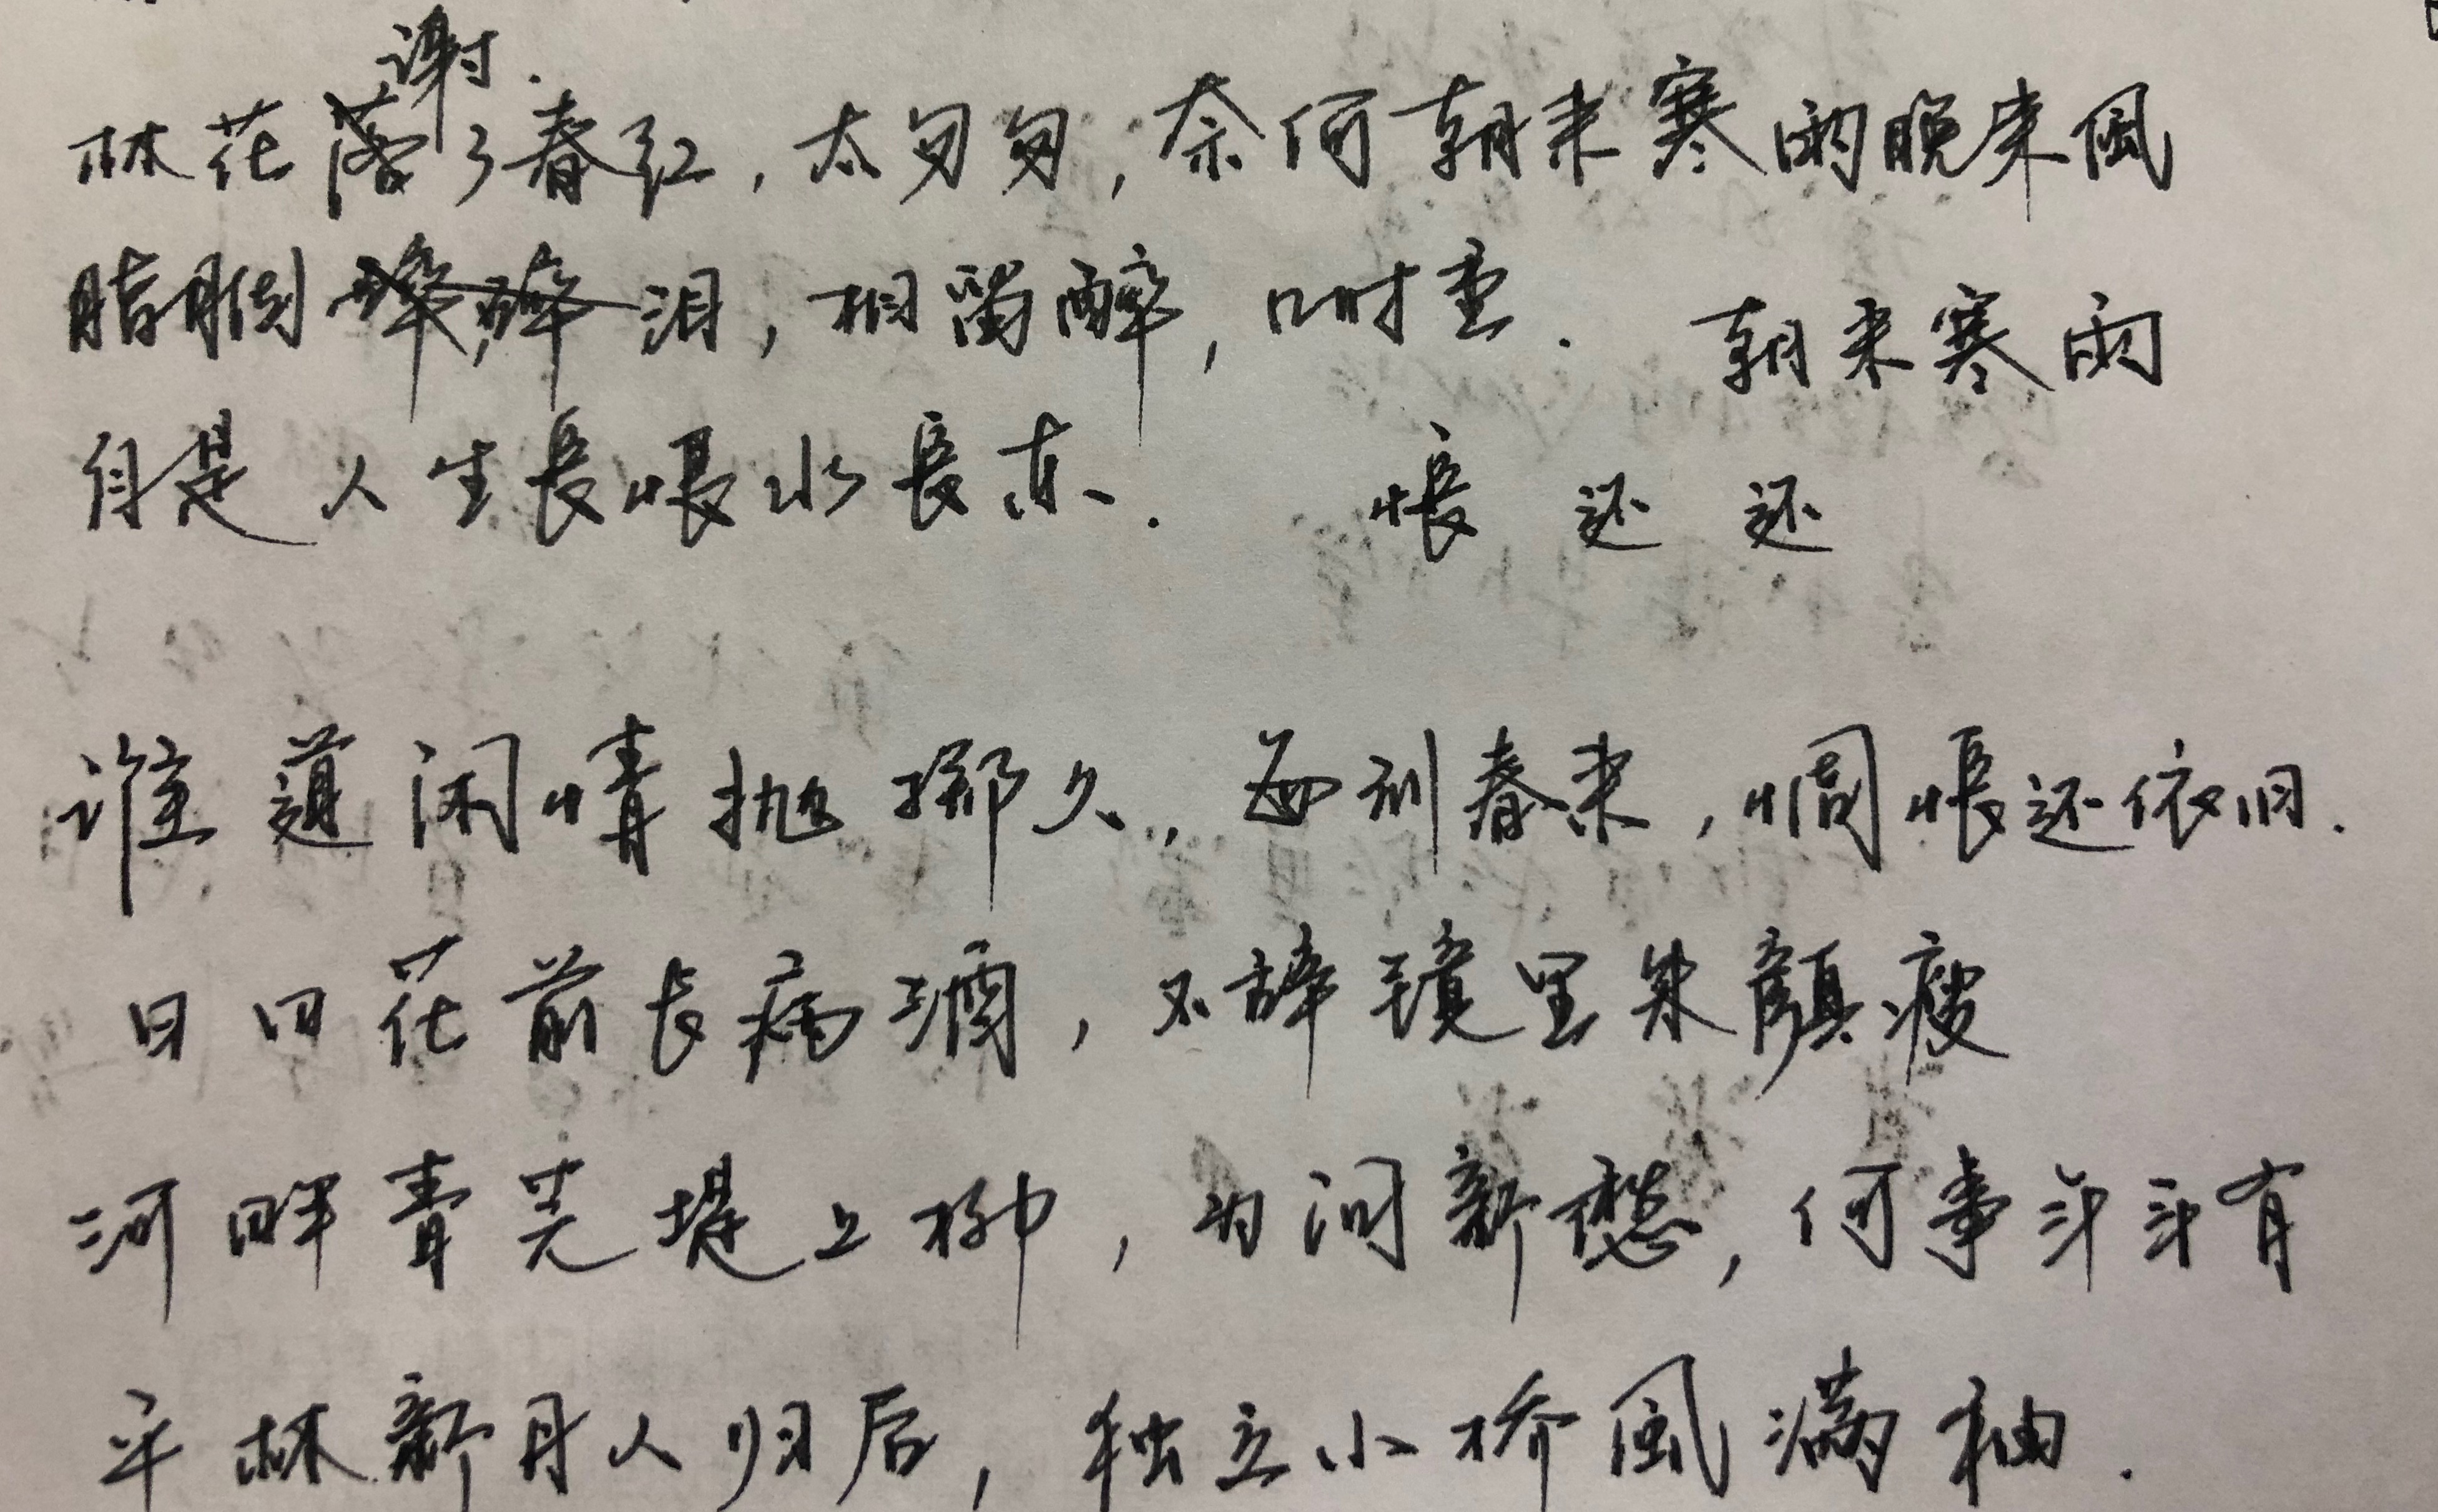 谢.
林花落了春红,太匆匆,奈何朝来寒雨晚来風
脂胭泪,相留醉,叶重. 朝来寒雨
自是人生長恨水長东. 悵还还
谁道闲情抛掷久,每到春来,惆悵还依旧.
日日花前长病酒,不辞镜里朱顏瘦
河畔青芜堤上柳,为问新愁,何事年年有
平林新月人归后,独立小桥風满袖.